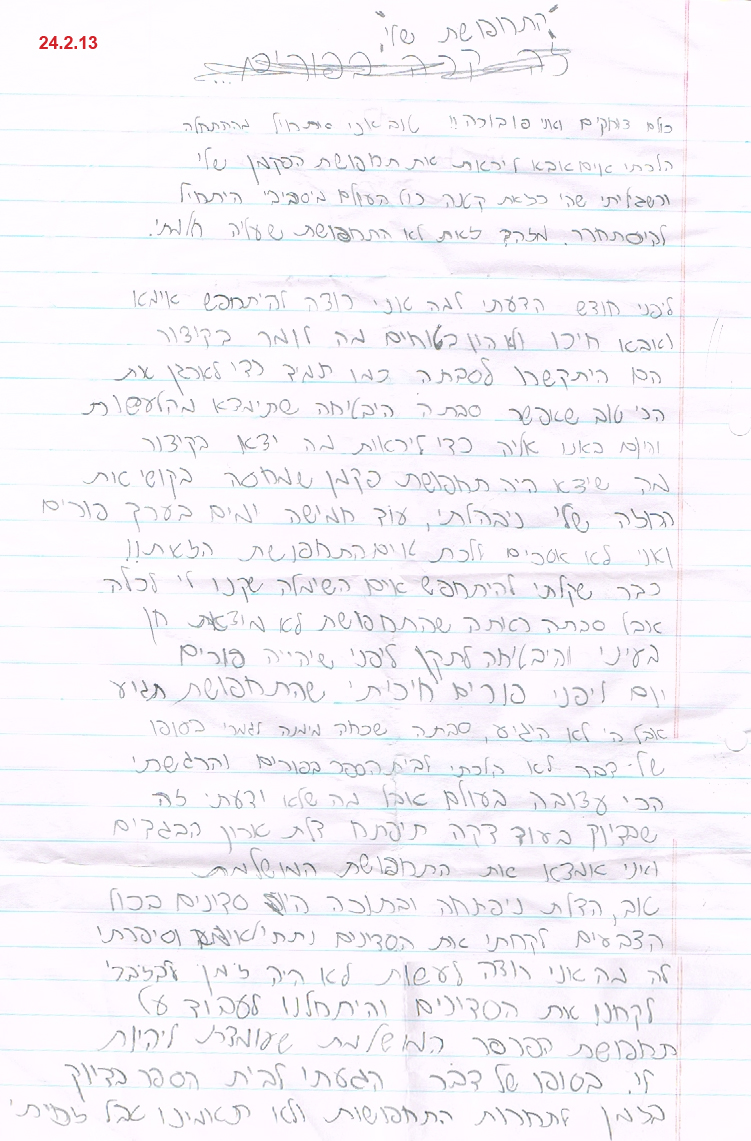 24.2.13
"התחפושת שלי"
זה קרה בפורים...
כולם צוחקים ואני פו בוכה!! טוב אני אתחיל מההתחלה
הלכתי אים אבא ליראות את תחפושת הפקמן שלי
וכשגיליתי שהי כזאת קטנה כול העולם ביסביבי היתחיל
להיסתחרר. מזהב זאת לא התחפושת שעליה חלמתי.
ליפני חודש הדעתי למה אני רוצה להיתחפש אימא
ואבא חיכו ולא היו בטוחים מה לומר בקיצור
הם היתקשרו לסבתה כמו תמיד כדי לארגן את
הכי טוב שאפשר סבתה היבטיחה שתימצא מהלעשות
והיום באנו אליה כדי ליראות מה יצא בקיצור
מה שיצא היה תחפושת פקמן שמחסה בקושי את
החזה שלי ניבהלתי, עוד חמישה ימים בערך פורים
ואני לא אסכים ללכת אים התחפושת הזאת!!
כבר שקלתי להיתחפש אים השימלה שקנו לי לכלה
אבל סבתה ראתה שהתחפושת לא מוצאת חן
בעיני והיבטיחה לתקן ליפני שיהייה פורים
יום ליפני פורים חיכיתי שהתחפושת תגיע
אבל הי לא היגיע, סבתה שכחה מימנה לגמרי בסופו
של דבר לא הלכתי לבית הספר בפורים והרגשתי
הכי עצובה בעולם אבל מה שלא ידעתי זה
שבדיוק בעוד דקה תיפתח דלת ארון הבגדים
ואני אמצא את התחפושת המושלמת.
טוב, הדלת ניפתחה ובתוכה היו סדינים בכול
הצבעים לקחתי את הסדינים נתתי לאימא וסיפרתי
לה מה אני רוצה לעשות לא היה זמן לבזבז
לקחנו את הסדינים והיתחלנו לעבוד על
תחפושת הפרפר המושלמת שעומדת ליהיות
לי. בסופו של דבר הגעתי לבית הספר בדיוק
בזמן לתחרות התחפושות ולא תאמינו אבל זכיתי